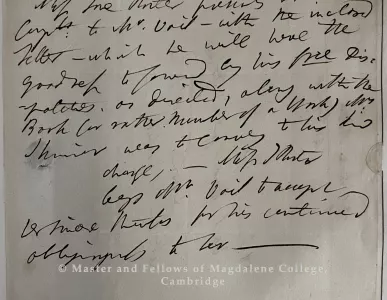 Miss Jane Porter presents
Compts to Mr. Vail – with the inclosed
letter – which he will have the
goodness to forward by his free Dis-
patches. as directed, along with the
Book (or rather Number of a Work) Mrs
Skinner was to convey to his kind
charge, – Miss Porter
begs Mr. Vail to accept
her sincere thanks for his continued
obligingness to her –
© Master and Fellows of Magdalene College,
Cambridge